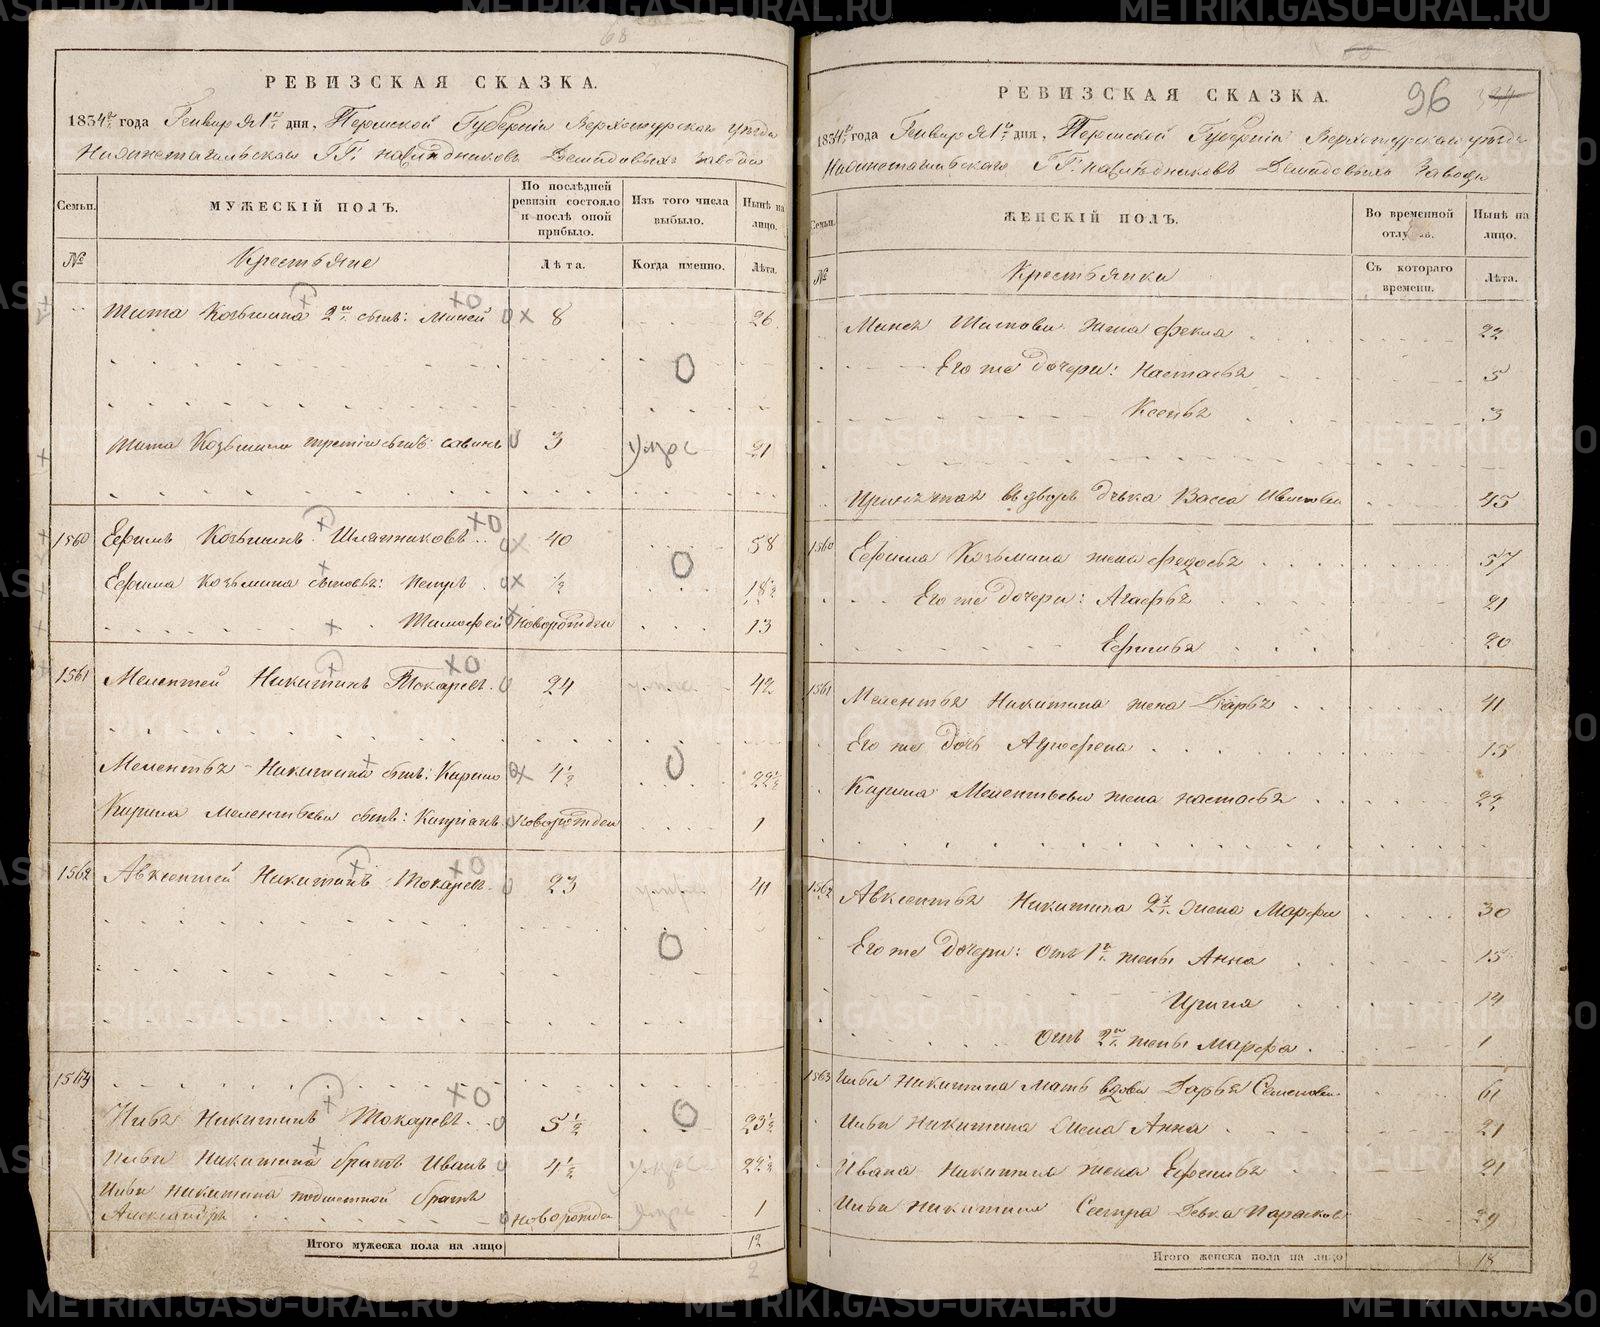 68
РЕВИЗСКАЯ СКАЗКА.
1834го года Генваря 1го дня, Пермской Губерніи Верхотурскаго уѣзда
Нижнетагильскаго ГГ. наслѣдниковъ Демидовыхъ завода
Семьи.
МУЖЕСКІЙ ПОЛЪ.
По послѣдней ревизіи состояло и послѣ оной прибыло.
Изъ того числа выбыло.
Нынѣ на лицо.
№
Крестьяне
Лѣта.
Когда именно.
Лѣта.
Тита Козьмина 2й сынъ: Миней 8 26
Тита Козьмина третій сынъ: Савинъ 3 Умре 21
1560 Ефимъ Козьминъ Шляпниковъ 40 58
Ефима Козьмина сыновья: Петръ ½ 18½
Тимофей новорожден 13
1561 Мелентей Никитинъ Токаревъ 24 умре 42
Мелентья Никитина сынъ: Кирило 4½ 22½
Кирила Мелентьева сынъ: Капріянъ новорожден 1
1562 Авксентей Никитинъ Токаревъ 23 41
1563
Никитинъ Токаревъ 5½ 23½
Никитина братъ Иванъ 4½ умре 22½
Никитина братъ
Александръ новорожден умре 1
Итого мужеска пола на лицо 12
2
96
РЕВИЗСКАЯ СКАЗКА.
1834го года Генваря 1го дня, Пермской Губерніи Верхотурскаго уѣзда
Нижнетагильскаго ГГ. наслѣдниковъ Демидовыхъ завода
Семьи.
ЖЕНСКІЙ ПОЛЪ.
Во временной отлучкѣ.
Нынѣ на лицо.
№
Крестьянки
Съ котораго времени.
Лѣта.
Минея Титова жена Фекла 22
Его же дочери: Настасья 5
Ксенья 3
дѣвка Васса 45
1560 Ефима Козьмина жена Федосья 57
Его же дочери: Агафья 21
Ефимья 20
1561 Мелентья Никитина жена Дарья 41
Его же дочь Агрофена 15
Кирила Мелентьева жена Настасья 22
1562 Авксентья Никитина 2я жена Марфа 30
Его же дочери: отъ 1й жены Анна 15
Ирина 14
отъ 2й жены Марфа 1
1563 Никитина мать вдова Дарья Семенова 61
Никитина жена Анна 21
Ивана Никитина жена Ефимья 21
Никитина сестра девка Парасковья 29
Итого женска пола на лицо 18
METRIKI.GASO-URAL.RU